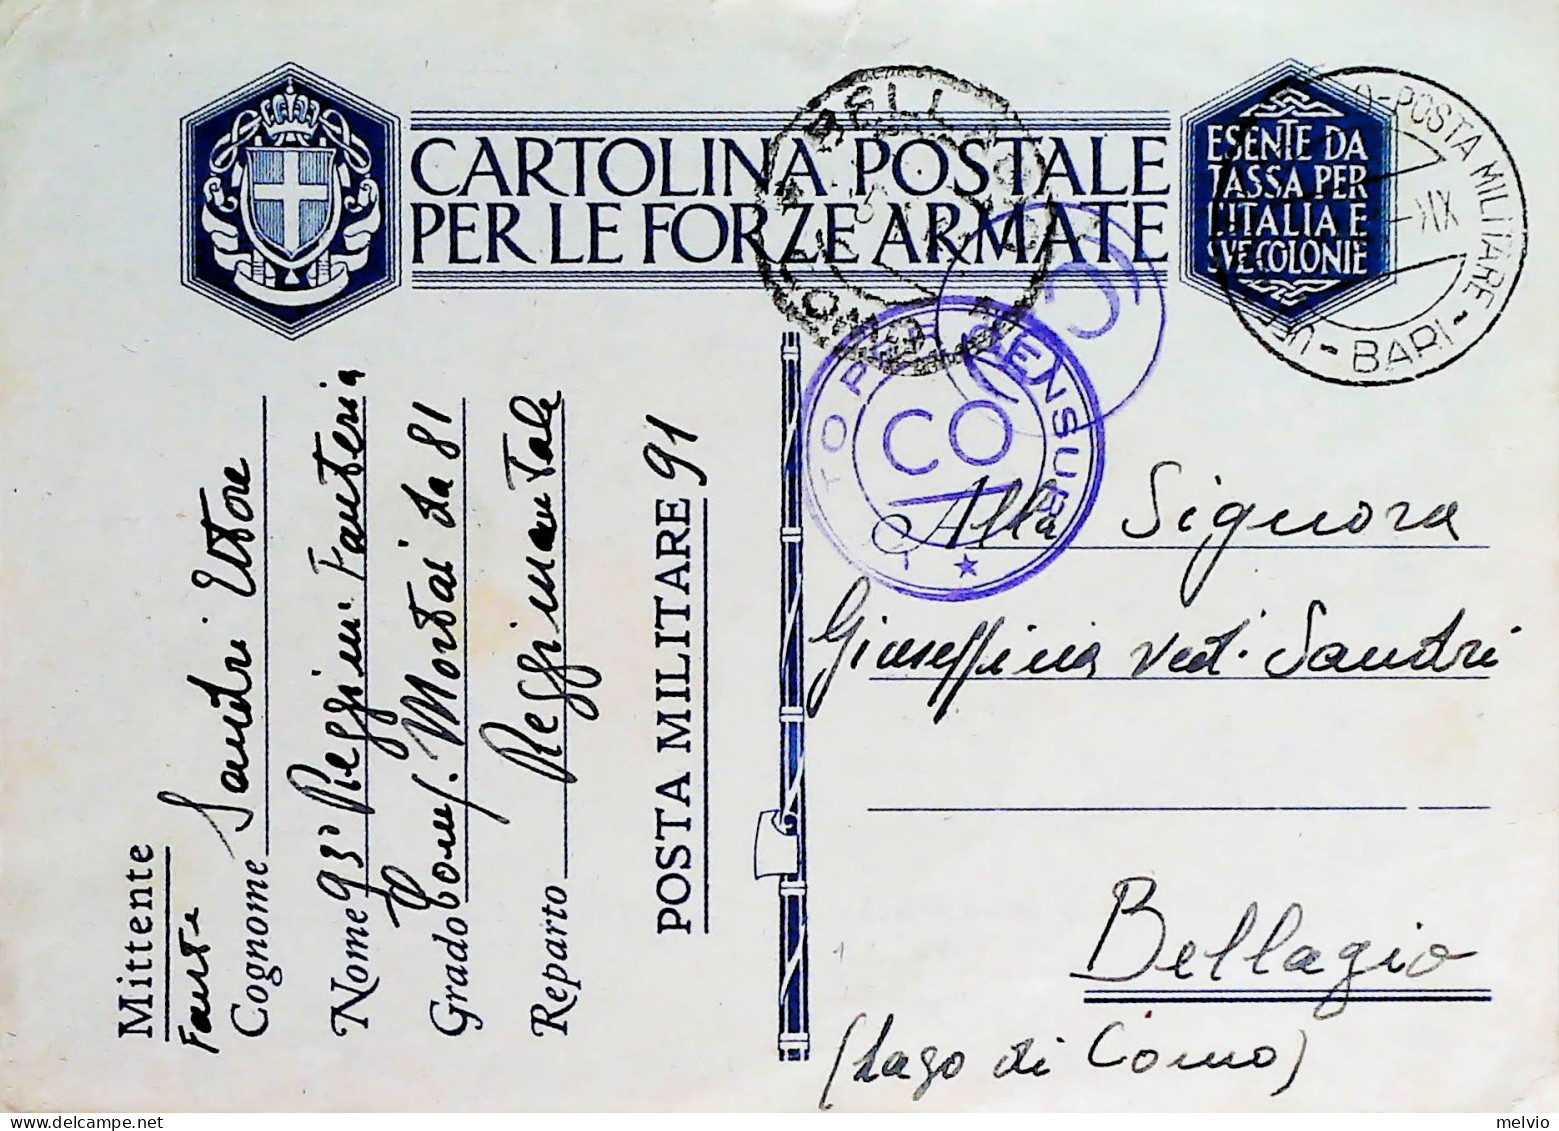 CARTOLINA POSTALE
PER LE FORZE ARMATE
ESENTE DA
TASSA PER
L'ITALIA E
SVE COLONIE
POSTA MILITARE
BARI
XIX
BELLAGIO
COMO
CENSURA
CO
Mittente
Fante
Cognome Sandri Ettore
Nome 93° Reggim. Fanteria
Grado Comp. Mortai da 81
Reparto Reggimentale
POSTA MILITARE 91
Alla Signora
Giuseffina ved. Sandri
Bellagio
(Lago di Como)
melvio